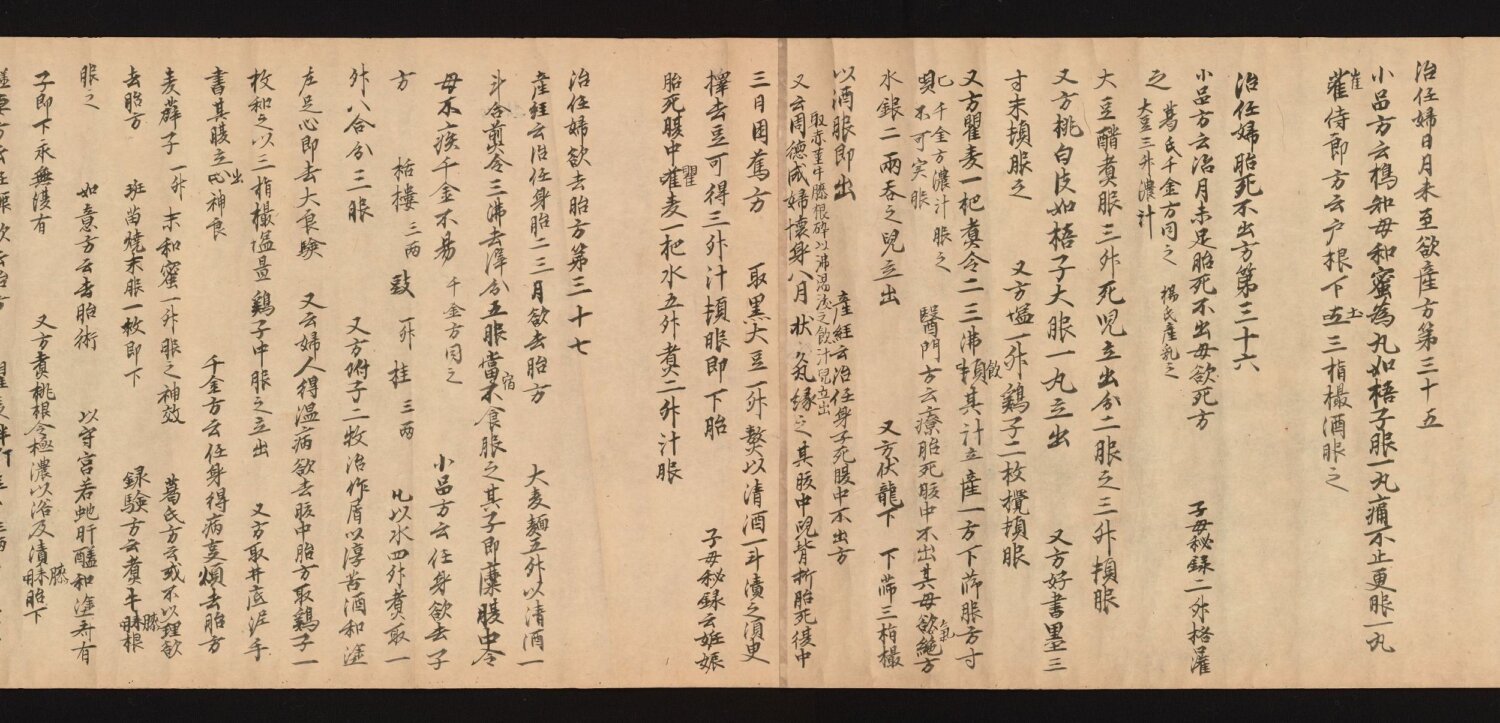 治任婦日月未至欲産方第三十五
小品方云槝知母和蜜為丸如梧子服一丸痛不止更服一丸
崔
蓷侍郎方云户根下土三指撮酒服之
治任婦胎死不出方第三十六
小品方云治月未足胎死不出母欲死方 子母秘録二升格灌
之 葛氏千金方同之 楊氏産乳之
大豆三升濃汁
大豆醋煮服三升死児立出分二服之三升頓服
又方桃白皮如梧子大服一丸立出 又方好書墨三
寸末頓服之 又方塩一升鶏子二枚攪頓服
又方瞿麦一把煮令二三沸頓其汁立産一方下篩服方寸
飲
匕 千金方濃汁服之 醫門方云療胎死胲中不出其母欲絶方
氣
水銀二兩吞之児立出 又方伏龍下 下篩三指撮
以酒服即出 産経云治任身子死腸中不出方
取赤茎牛膝根碎以沸湯浅之飲汁児立出
又云周德成婦懐身八月状 灸縁之其胲中児背折胎死後中
三日困篤方 取黒大豆一升熬以清酒一斗漬之湏臾
擇去豆可得三升汁頓服即下胎 子母秘録云姙娠
胎死腸中瞿麦一把水五升煮二升汁服
治任婦欲去胎方第三十七
産経云治任身胎二三月欲去胎方 大麦麺五升以清酒一
斗合煎令三沸去滓分五服當宿不食服之其子即糜腸中令
母不疾千金不易 千金方同之 小品方云任身欲去子
方 栝樓 三两 豉 一升 桂 三两 凡以水四升煮取一
升八合分三服 又方附子二牧冶作屑以淳苦酒和塗
左足心即去大良験 又云婦人得温病欲去胲中胎方取鶏子一
枚和之以三指撮塩置鶏子中服之立出 又方取井底泥手
書其腸立出神良 千金方云任身得病亊煩去胎方
麦蘖子 一升 末和蜜一升服之神效 葛氏方云或不以理欲
去胎方 班苗焼末服一枚即下 録験方云煮牛膝根
服之 如意方云去胎術 以守宮若虵肝醯和塗斉有
子即下永無復有 又方煮桃根令極濃以浴及漬膝胎下